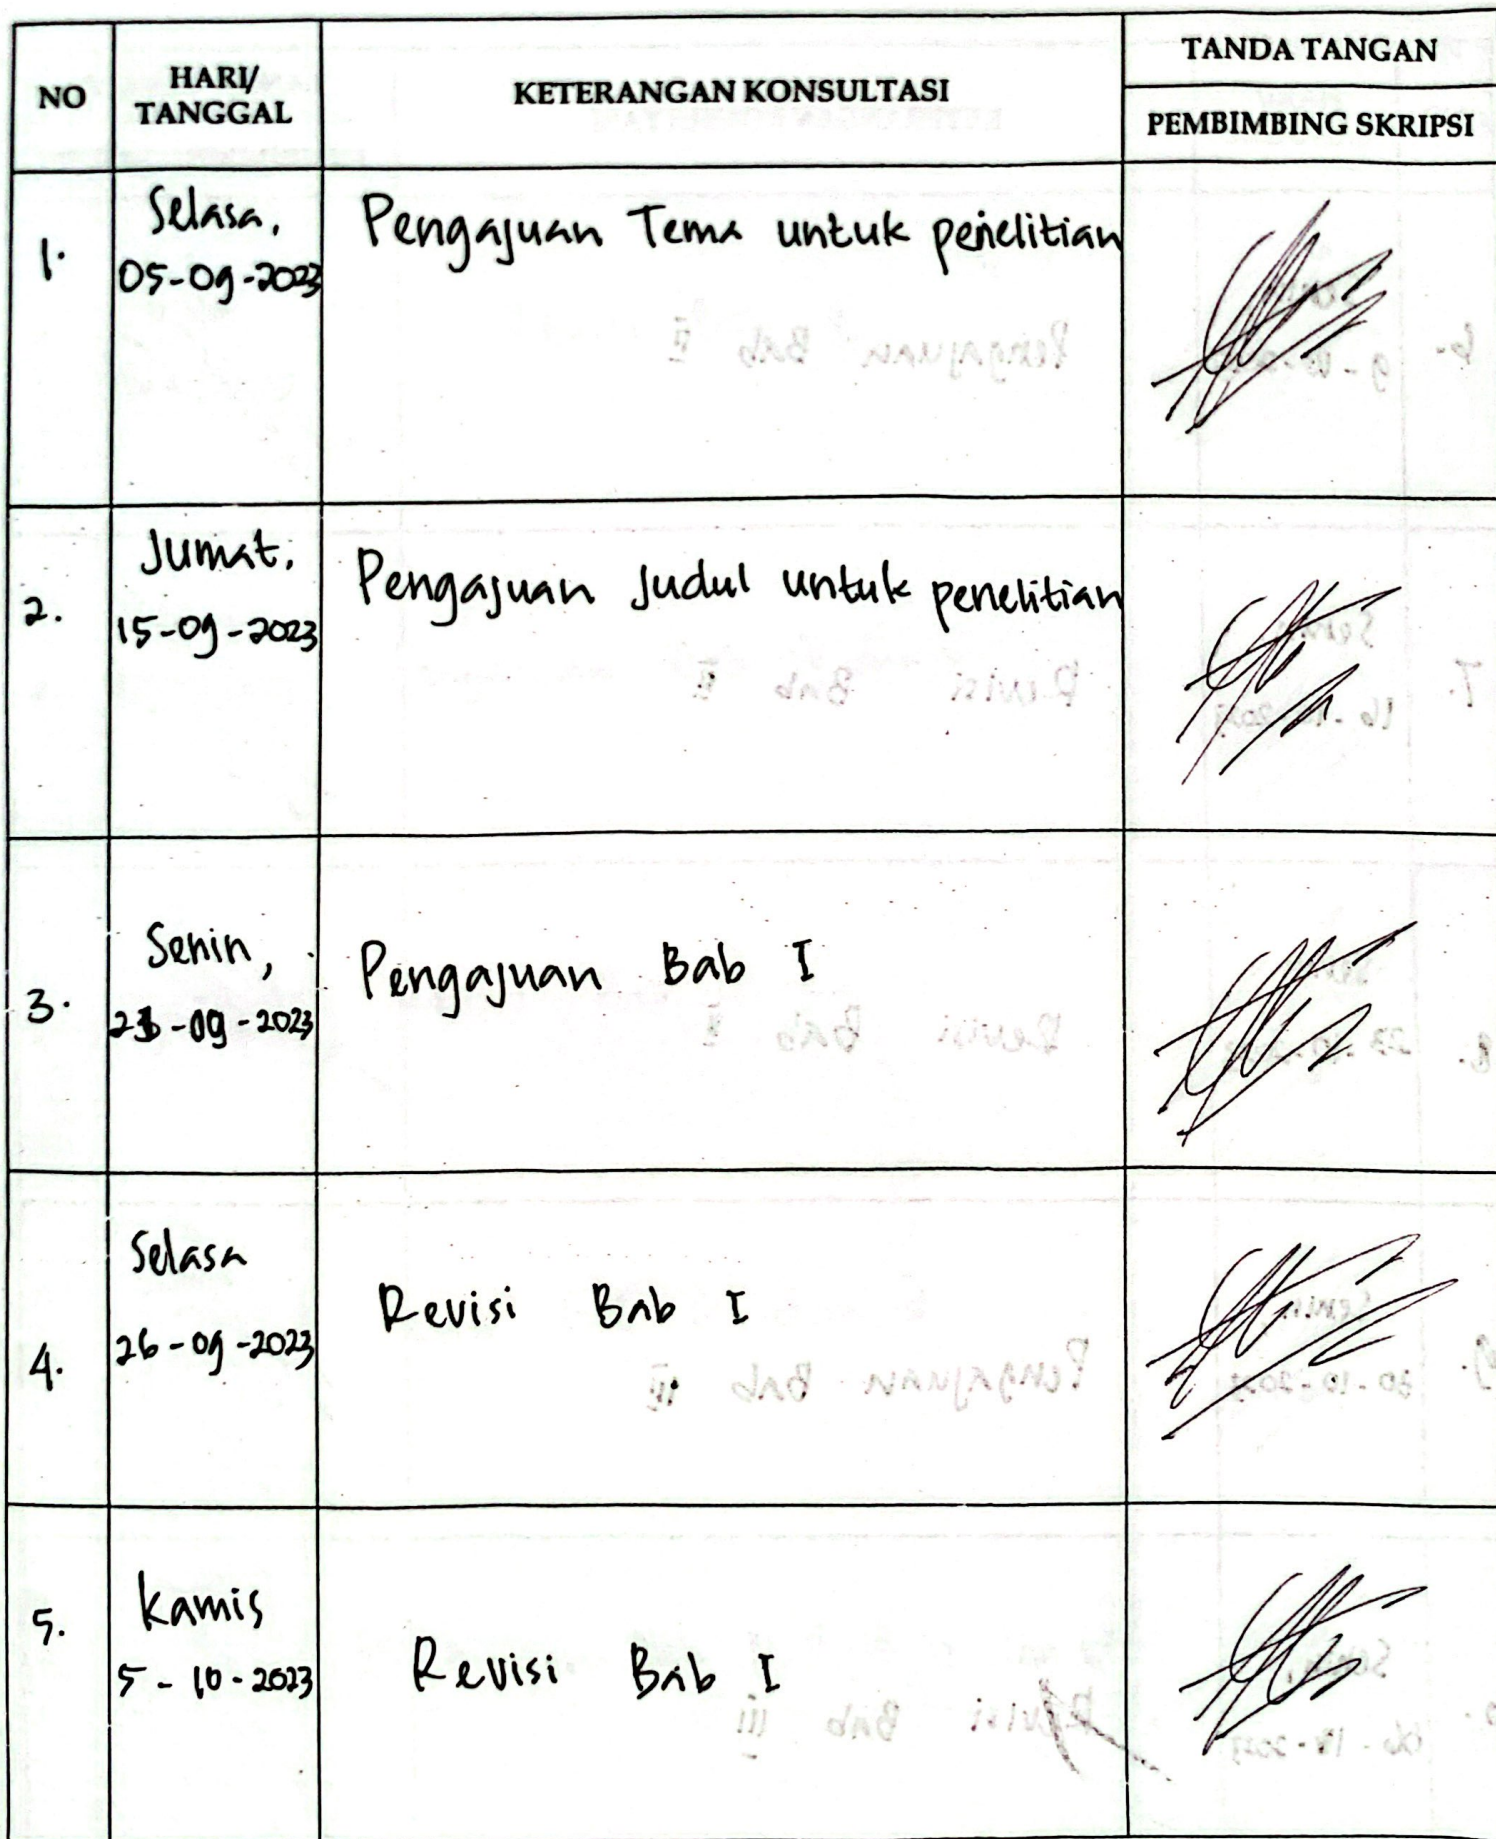 NO
HARI/
TANGGAL
KETERANGAN KONSULTASI
TANDA TANGAN
PEMBIMBING SKRIPSI
1.
Selasa,
05-09-2023
Pengajuan Tema untuk penelitian
2.
Jumat,
15-09-2023
Pengajuan Judul untuk penelitian
3.
Senin,
-09-2023
Pengajuan Bab I
4.
Selasa
26-09-2023
Revisi Bab I
5.
Kamis
5-10-2023
Revisi Bab I